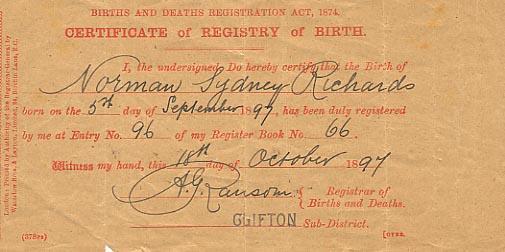 BIRTHS AND DEATHS REGISTRATION ACT, 1874.
CERTIFICATE OF REGISTRY OF BIRTH.
I, the undersigned, Do hereby certify that the Birth of
Norman Sydney Richards
born on the 5th day of September 1897, has been duly registered
by me at Entry No. 96 of my Register Book No. 66.
Witness my hand, this 18th day of October 1897
A.G. Ransom { Registrar of
Births and Deaths.
CLIFTON Sub-District.
(378PS) [OVER.
London: Printed by Authority of the Registrar-General by